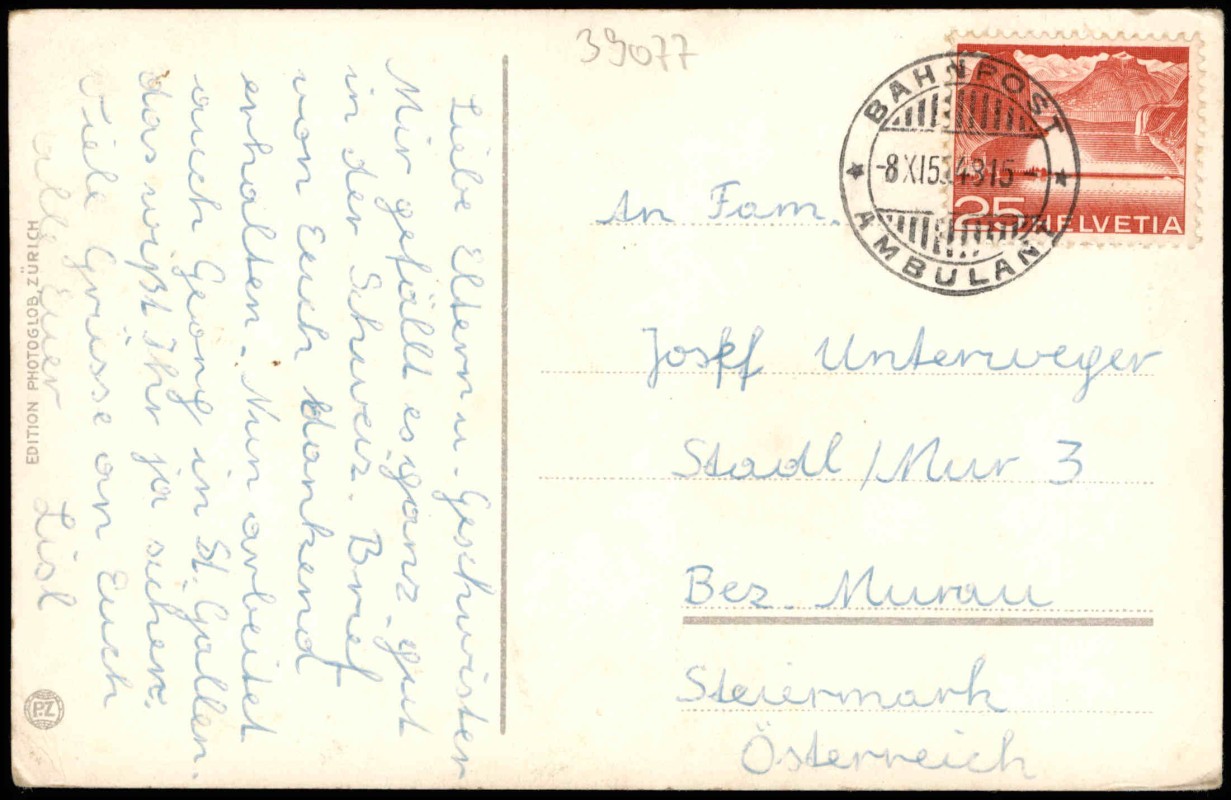 39077
BAHNPOST
AMBULANT
25
HELVETIA
Liebe Eltern u. Geschwister
Mir gefällt es ganz gut
in der Schweiz. Brief
von Euch dankend
erhalten. Nun arbeitet
auch Georg in St. Gallen.
das wißt Ihr ja sicher.
Viele Grüsse an Euch
alle Euer Lisl
An Fam.
Josef Unterweger
Stadl / Mur 3
Bez. Murau
Steiermark
Österreich
EDITION PHOTOGLOB, ZÜRICH
P.Z